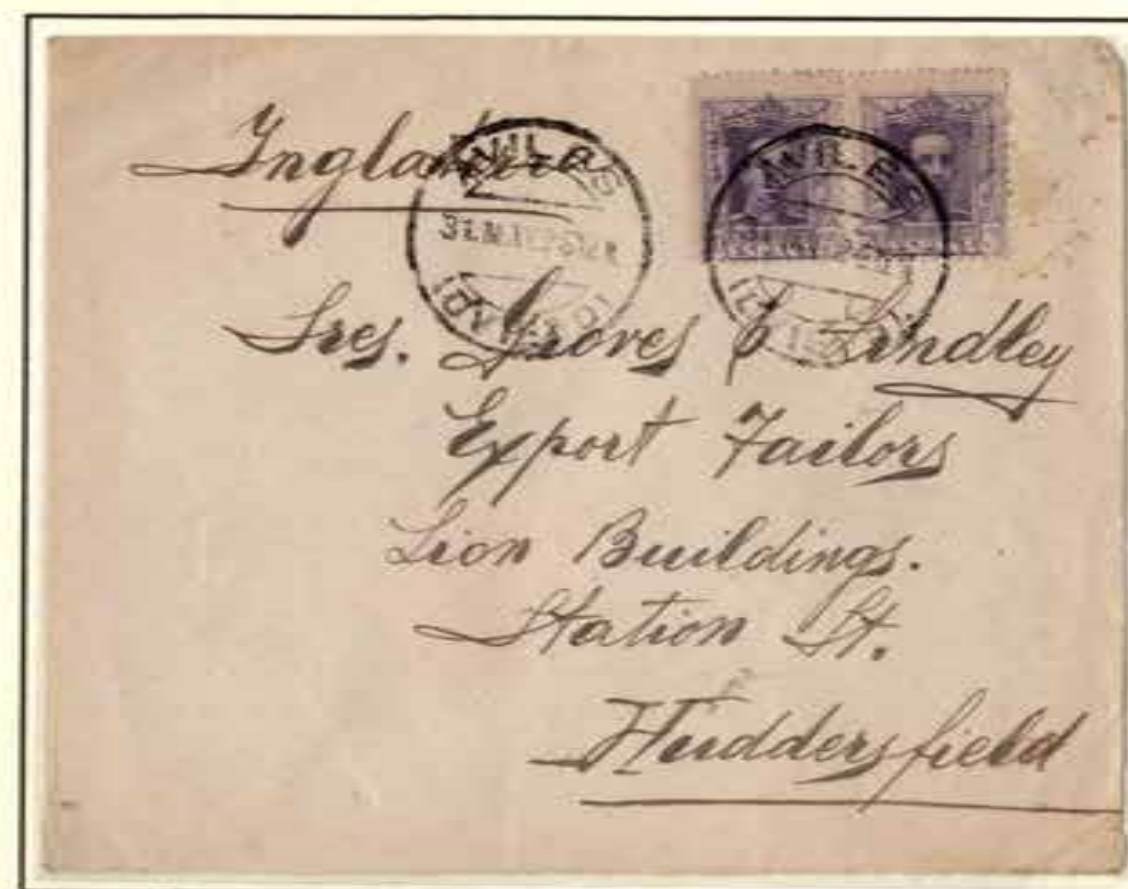 Inglaterra
AVILES
31.MAY.26
(OVIEDO)
AVILES
Sres. Groves & Lindley
Export Tailors
Lion Buildings.
Station St.
Huddersfield